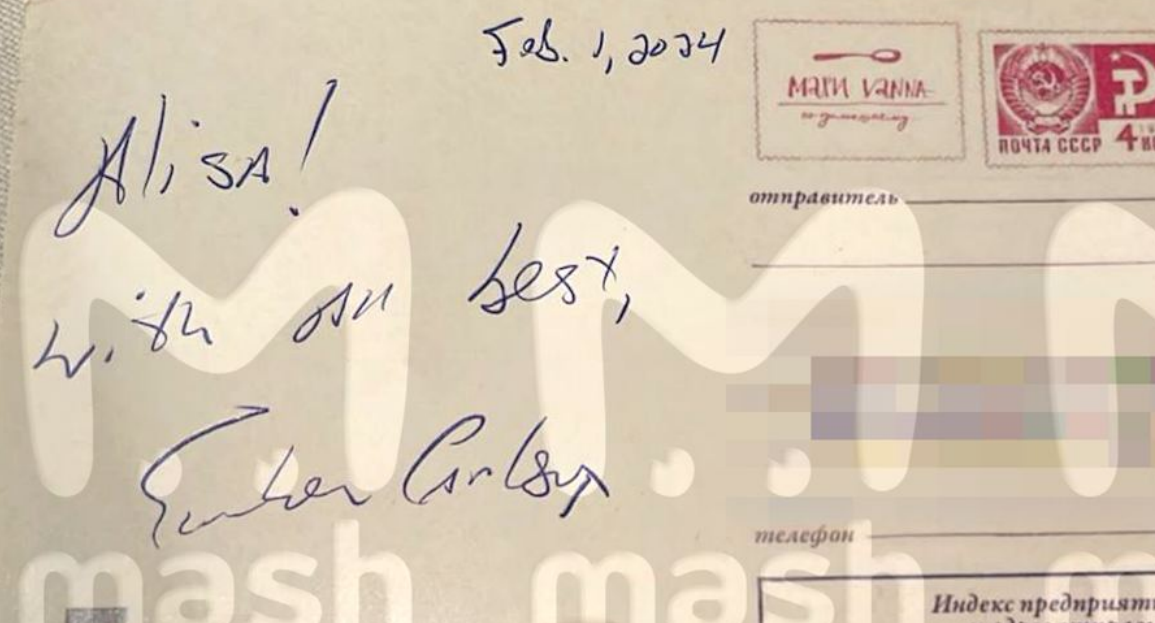 Feb. 1, 2024
Alisa!
with all best,
Tucker Carlson
МАРИ VАННА
по-домашнему
ПОЧТА СССР 4
отправитель
телефон
Индекс предприят
mash mash m